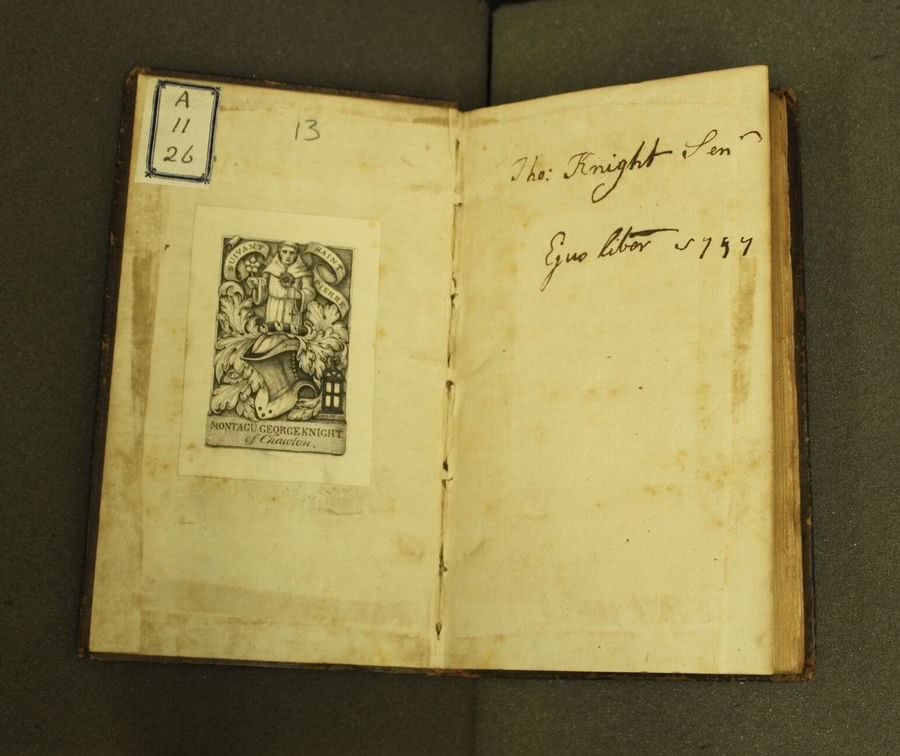 A
11
26
13
SUIVANT SAINT PIERRE
MONTAGU GEORGE KNIGHT
of Chawton.
Tho: Knight Senr
Ejus liber 1757